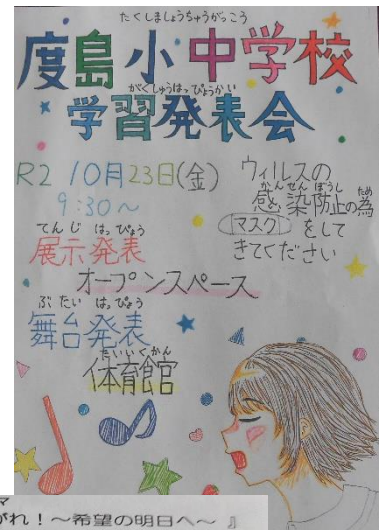 たくしましょうちゅうがっこう
度島小中学校
がくしゅうはっぴょうかい
学習発表会
R2 10月23日(金)
9:30～
てんじ はっぴょう
展示発表
オープンスペース
ぶたい はっぴょう
舞台発表
たいいくかん
体育館
ウィルスの
かんせんぼうし ため
感染防止の為
マスクをして
きてください
がれ!～希望の明日へ～』